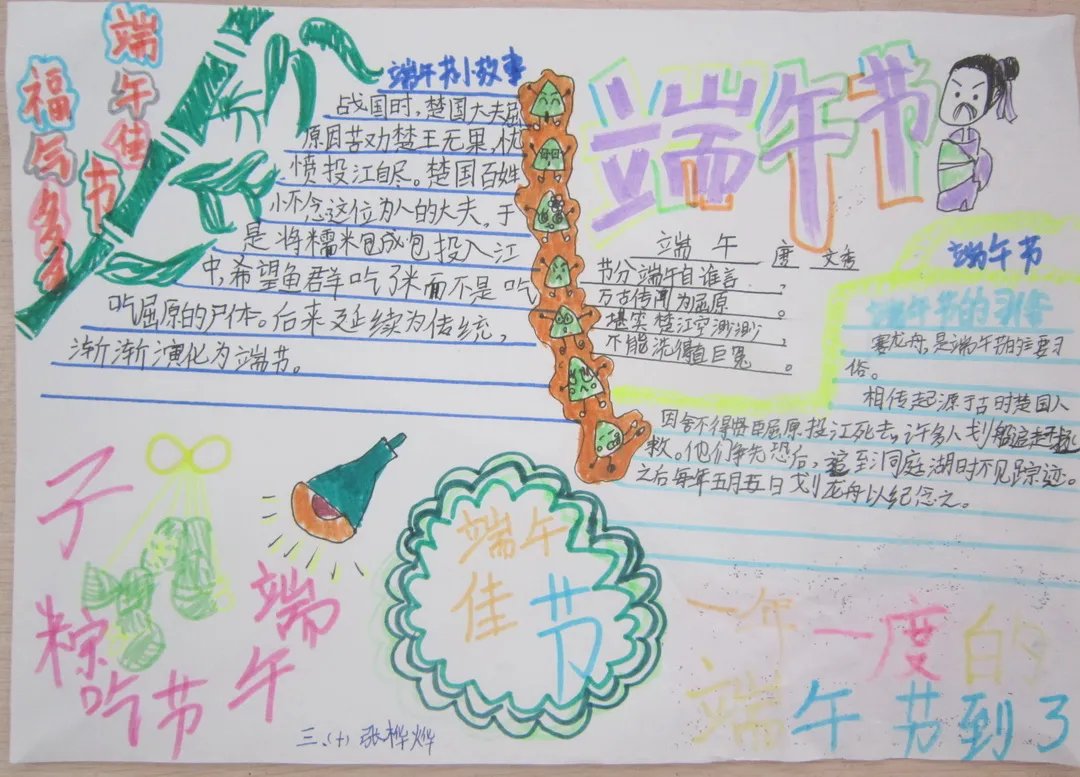 端午佳节
福气多多
端午节小故事
战国时，楚国大夫屈
原因苦劝楚王无果，忧
愤投江自尽。楚国百姓
小不念这位为人的大夫。于
是将糯米包成包投入江
中，希望鱼群吃了米而不是吃
吃屈原的尸体。后来延续为传统，
渐渐演化为端节。
端午节
端午 文秀
节分端午自谁言，
万古传闻为屈原。
堪笑楚江空渺渺，
不能洗得直臣冤。
端午节
端午节的习俗
赛龙舟，是端午节的主要习
俗。
相传起源于古时楚国人
因舍不得贤臣屈原投江死去，许多人划船追赶拯
救。他们争先恐后，追至洞庭湖时不见踪迹。
之后每年五月五日划龙舟以纪念之。
端午
节吃
粽
子
端午
佳节
一年一度的
端午节到了
三、(十) 张桦烨